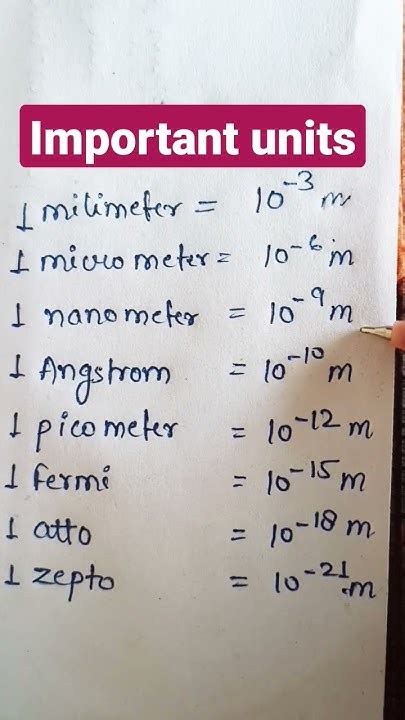 Important units
1 milimeter = 10⁻³ m
1 micrometer = 10⁻⁶ m
1 nanometer = 10⁻⁹ m
1 Angstrom = 10⁻¹⁰ m
1 picometer = 10⁻¹² m
1 fermi = 10⁻¹⁵ m
1 atto = 10⁻¹⁸ m
1 zepto = 10⁻²¹ m